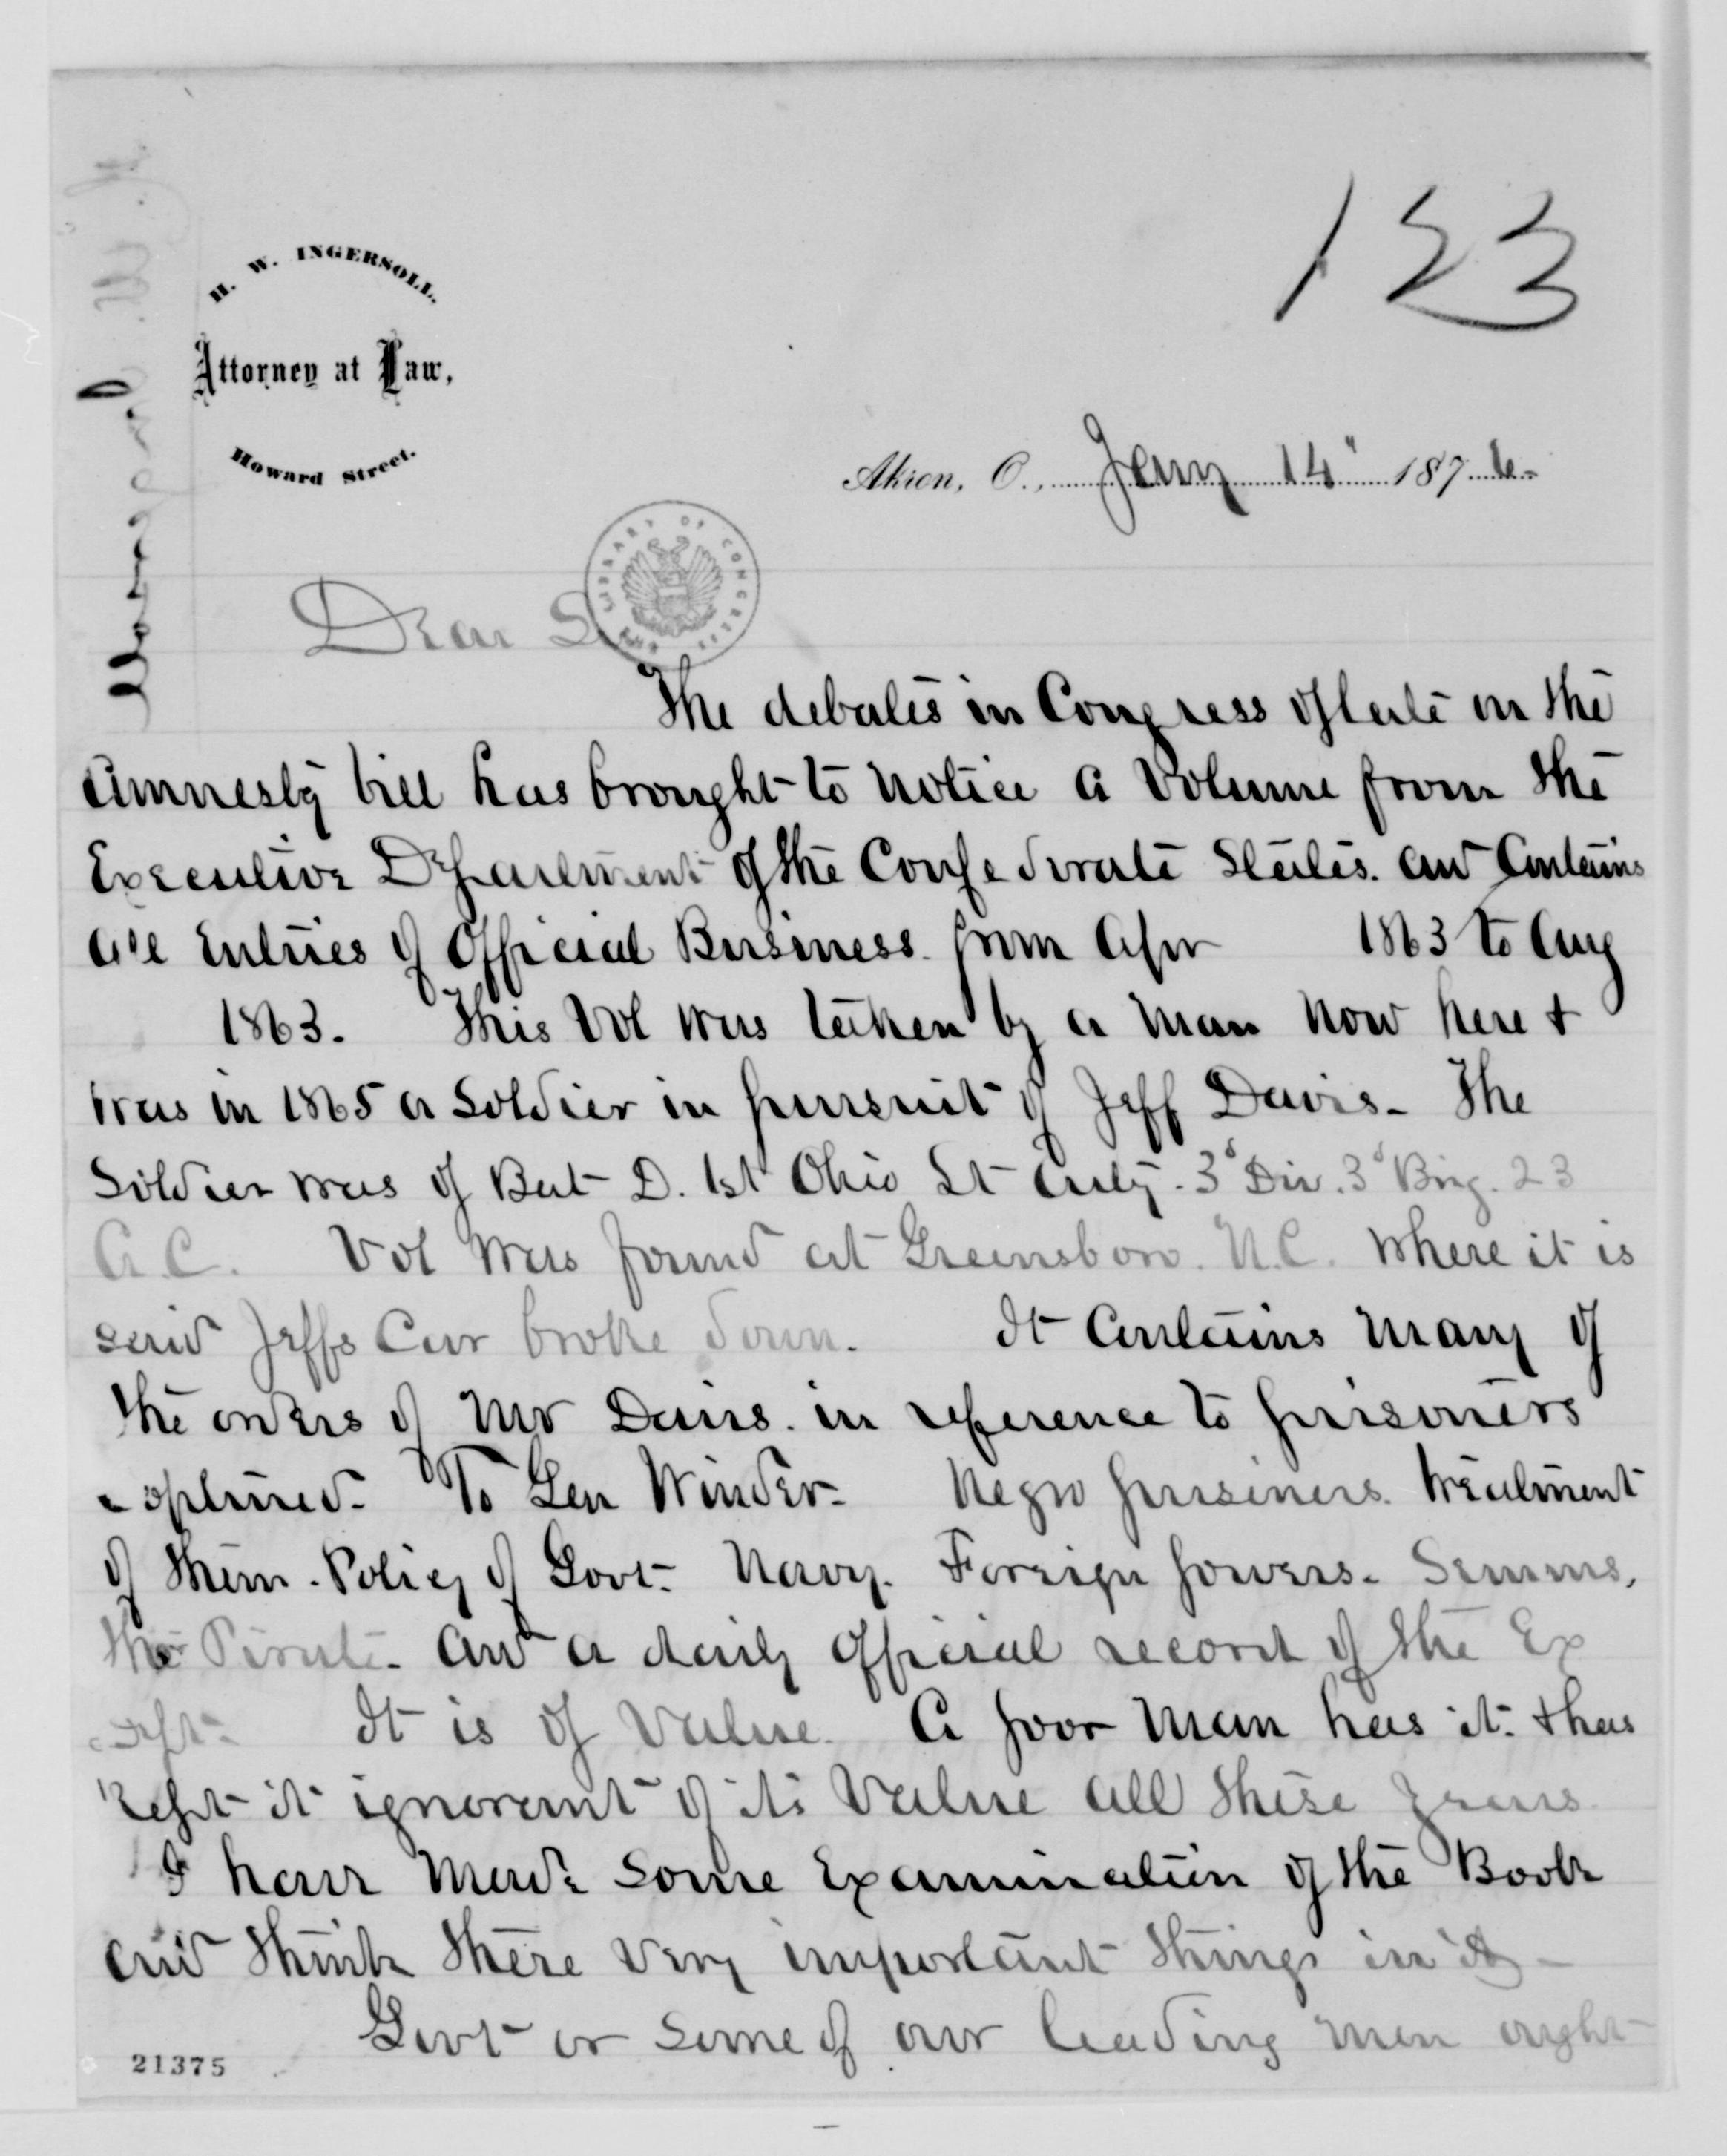 123
H. W. INGERSOLL,
Attorney at Law,
Howard Street.
Akron, O., Jany 14" 1876
LIBRARY OF CONGRESS
Dear S
The debates in Congress of late on the
Amnesty bill has brought to notice a Volume from the
Executive Department of the Confederate States. and Contains
all Entries of Official Business. from Apr 1863 to Aug
1863. This Vol was taken by a man now here +
was in 1865 a Soldier in pursuit of Jeff Davis - The
Soldier was of Bat D. 1st Ohio Lt Arty. 3d Div. 3d Brig. 23
A.C. Vol was found at Greensboro. N.C. where it is
said Jeffs Car broke down. It Contains many of
the orders of Mr Davis. in reference to prisoners
captured. To Gen Winder - Negro prisiners. treatment
of them. Policy of Govt. Navy. Foreign powers. Semms,
the Pirate. and a daily official record of the Ex
Dept. It is of Value. A poor man has it. + has
Kept it ignorant of its Value all these years
I have made some Examination of the Book
and think there very important things in it -
Govt or some of our leading men ought
21375